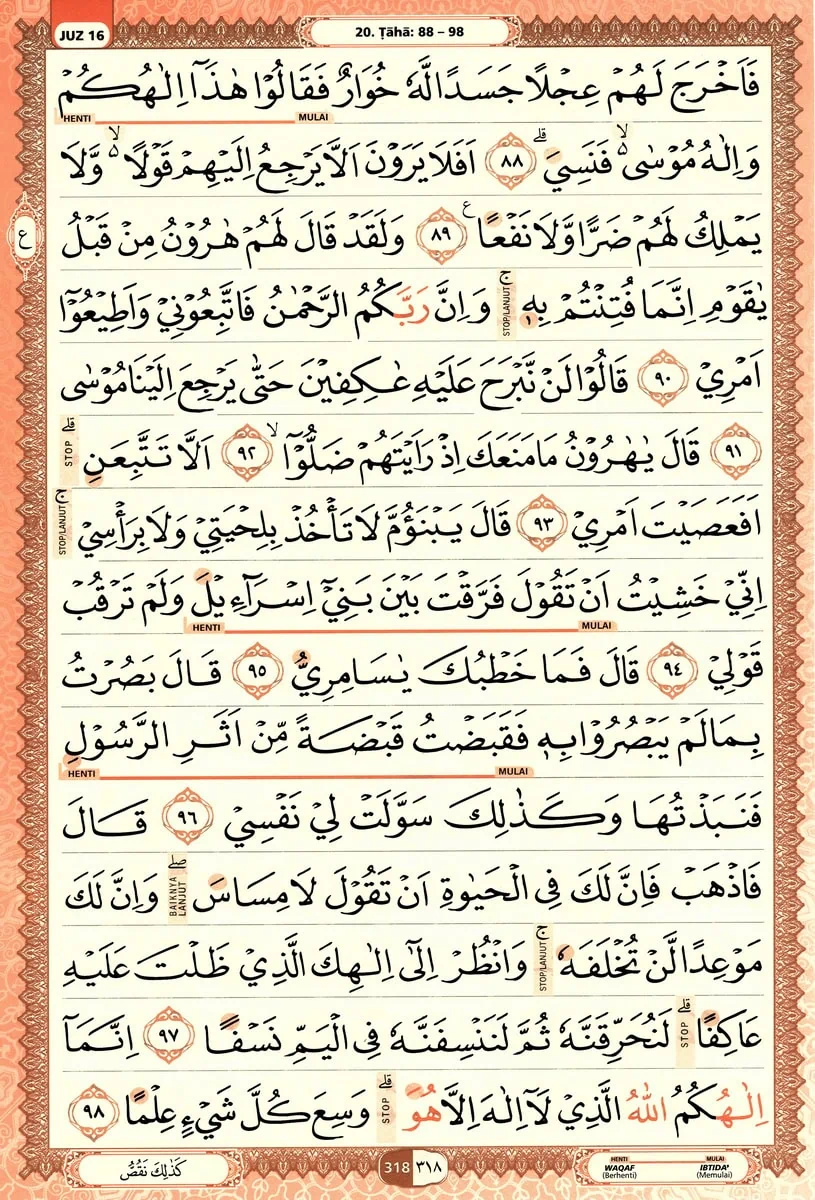 JUZ 16
20. Ṭāhā: 88 – 98
فَاَخْرَجَ لَهُمْ عِجْلًا جَسَدًا لَّهٗ خُوَارٌ فَقَالُوْا هٰذَآ اِلٰهُكُمْ
HENTI MULAI
وَاِلٰهُ مُوْسٰى ەۙ فَنَسِيَ ۗ ٨٨ اَفَلَا يَرَوْنَ اَلَّا يَرْجِعُ اِلَيْهِمْ قَوْلًا ەۙ وَّلَا
ع
يَمْلِكُ لَهُمْ ضَرًّا وَّلَا نَفْعًا ࣖ ٨٩ وَلَقَدْ قَالَ لَهُمْ هٰرُوْنُ مِنْ قَبْلُ
يٰقَوْمِ اِنَّمَا فُتِنْتُمْ بِهٖ ۚ STOP/LANJUT وَاِنَّ رَبَّكُمُ الرَّحْمٰنُ فَاتَّبِعُوْنِيْ وَاَطِيْعُوْٓا
اَمْرِيْ ٩٠ قَالُوْا لَنْ نَّبْرَحَ عَلَيْهِ عٰكِفِيْنَ حَتّٰى يَرْجِعَ اِلَيْنَا مُوْسٰى
٩١ قَالَ يٰهٰرُوْنُ مَا مَنَعَكَ اِذْ رَاَيْتَهُمْ ضَلُّوْٓا ۙ ٩٢ اَلَّا تَتَّبِعَنِ ۗ STOP
اَفَعَصَيْتَ اَمْرِيْ ٩٣ قَالَ يَبْنَؤُمَّ لَا تَأْخُذْ بِلِحْيَتِيْ وَلَا بِرَأْسِيْ ۚ STOP/LANJUT
اِنِّيْ خَشِيْتُ اَنْ تَقُوْلَ فَرَّقْتَ بَيْنَ بَنِيْٓ اِسْرَاۤءِيْلَ وَلَمْ تَرْقُبْ
HENTI MULAI
قَوْلِيْ ٩٤ قَالَ فَمَا خَطْبُكَ يٰسَامِرِيُّ ٩٥ قَالَ بَصُرْتُ
بِمَا لَمْ يَبْصُرُوْا بِهٖ فَقَبَضْتُ قَبْضَةً مِّنْ اَثَرِ الرَّسُوْلِ
HENTI MULAI
فَنَبَذْتُهَا وَكَذٰلِكَ سَوَّلَتْ لِيْ نَفْسِيْ ٩٦ قَالَ
فَاذْهَبْ فَاِنَّ لَكَ فِى الْحَيٰوةِ اَنْ تَقُوْلَ لَا مِسَاسَ ۖ BAIKNYA LANJUT وَاِنَّ لَكَ
مَوْعِدًا لَّنْ تُخْلَفَهٗ ۚ STOP/LANJUT وَانْظُرْ اِلٰٓى اِلٰهِكَ الَّذِيْ ظَلْتَ عَلَيْهِ
عَاكِفًا ۗ STOP لَنُحَرِّقَنَّهٗ ثُمَّ لَنَنْسِفَنَّهٗ فِى الْيَمِّ نَسْفًا ٩٧ اِنَّمَآ
اِلٰهُكُمُ اللّٰهُ الَّذِيْ لَآ اِلٰهَ اِلَّا هُوَ ۗ STOP وَسِعَ كُلَّ شَيْءٍ عِلْمًا ٩٨
كَذٰلِكَ نَقُصُّ
318 ٣١٨
HENTI MULAI
WAQAF IBTIDA'
(Berhenti) (Memulai)